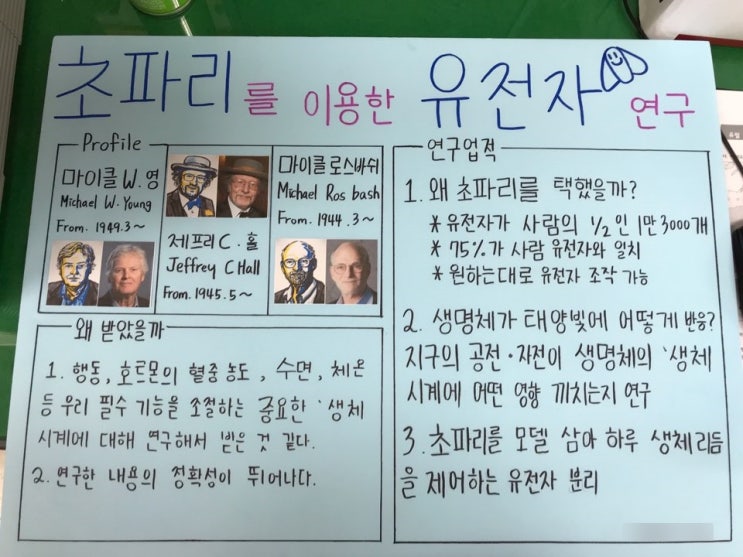 초파리를 이용한 유전자 연구
Profile
마이클 W. 영
Michael W. Young
From. 1949.3~
제프리 C · 홀
Jeffrey C Hall
From. 1945.5~
마이클 로스바쉬
Michael Ros bash
From. 1944.3~
왜 받았을까
1. 행동, 호르몬의 혈중 농도, 수면, 체온
등 우리 필수 기능을 조절하는 중요한 '생체
시계에 대해 연구해서 받은 것 같다.
2. 연구한 내용의 정확성이 뛰어나다.
연구업적
1. 왜 초파리를 택했을까?
* 유전자가 사람의 1/2인 1만 3000개
* 75%가 사람 유전자와 일치
* 원하는대로 유전자 조작 가능
2. 생명체가 태양빛에 어떻게 반응?
지구의 공전·자전이 생명체의 '생체
시계에 어떤 영향 끼치는지 연구
3. 초파리를 모델 삼아 하루 생체리듬
을 제어하는 유전자 분리